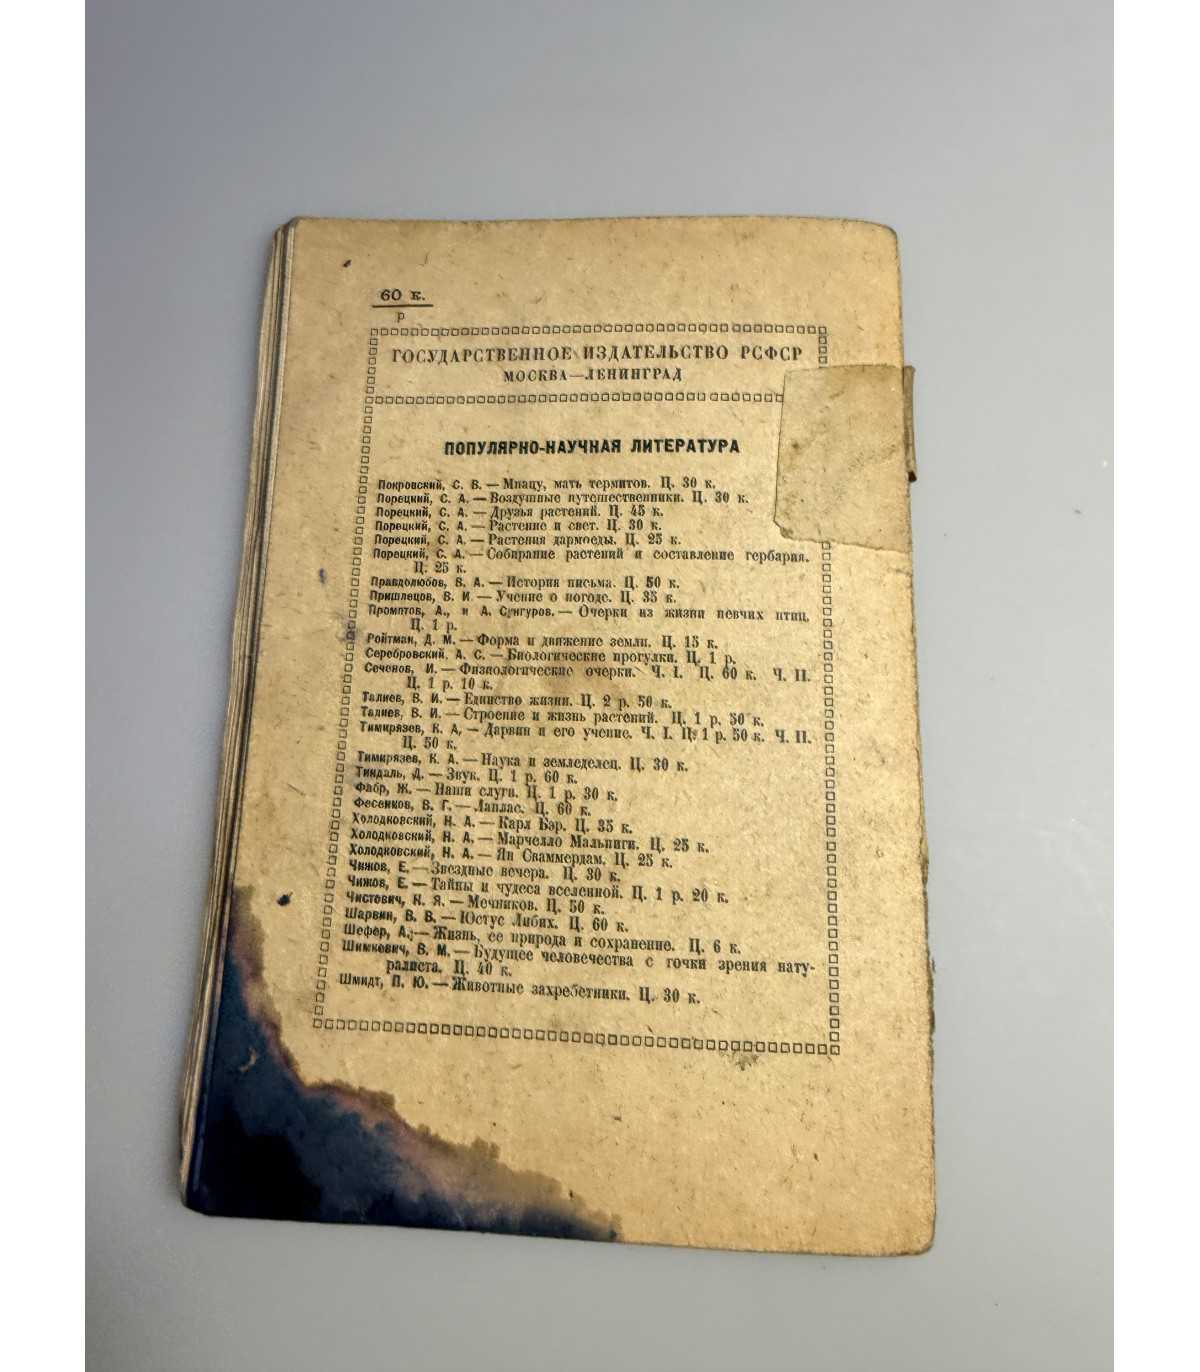 60 к.
р
ГОСУДАРСТВЕННОЕ ИЗДАТЕЛЬСТВО РСФСР
МОСКВА—ЛЕНИНГРАД
ПОПУЛЯРНО-НАУЧНАЯ ЛИТЕРАТУРА
Покровский, С. В. — Мпацу, мать термитов. Ц. 30 к.
Порецкий, С. А. — Воздушные путешественники. Ц. 30 к.
Порецкий, С. А. — Друзья растений. Ц. 45 к.
Порецкий, С. А. — Растение и свет. Ц. 30 к.
Порецкий, С. А. — Растения дармоеды. Ц. 25 к.
Порецкий, С. А. — Собирание растений и составление гербария.
Ц. 25 к.
Правдолюбов, В. А. — История письма. Ц. 50 к.
Пришлецов, В. И. — Учение о погоде. Ц. 35 к.
Промптов, А., и А. Снигуров. — Очерки из жизни певчих птиц.
Ц. 1 р.
Ройтман, Д. М. — Форма и движение земли. Ц. 15 к.
Серебровский, А. С. — Биологические прогулки. Ц. 1 р.
Сеченов, И. — Физиологические очерки. Ч. I. Ц. 60 к. Ч. II.
Ц. 1 р. 10 к.
Талиев, В. И. — Единство жизни. Ц. 2 р. 50 к.
Талиев, В. И. — Строение и жизнь растений. Ц. 1 р. 50 к.
Тимирязев, К. А. — Дарвин и его учение. Ч. I. Ц. 1 р. 50 к. Ч. II.
Ц. 50 к.
Тимирязев, К. А. — Наука и земледелец. Ц. 30 к.
Тиндаль, Д. — Звук. Ц. 1 р. 60 к.
Фабр, Ж. — Наши слуги. Ц. 1 р. 30 к.
Фесенков, В. Г. — Лаплас. Ц. 60 к.
Холодковский, Н. А. — Карл Бэр. Ц. 35 к.
Холодковский, Н. А. — Марчелло Мальпиги. Ц. 25 к.
Холодковский, Н. А. — Ян Сваммердам. Ц. 25 к.
Чижов, Е. — Звездные вечера. Ц. 30 к.
Чижов, Е. — Тайны и чудеса вселенной. Ц. 1 р. 20 к.
Чистович, Н. Я. — Мечников. Ц. 50 к.
Шарвин, В. В. — Юстус Либих. Ц. 60 к.
Шефер, А. — Жизнь, ее природа и сохранение. Ц. 6 к.
Шимкевич, В. М. — Будущее человечества с точки зрения нату-
ралиста. Ц. 40 к.
Шмидт, П. Ю. — Животные захребетники. Ц. 30 к.